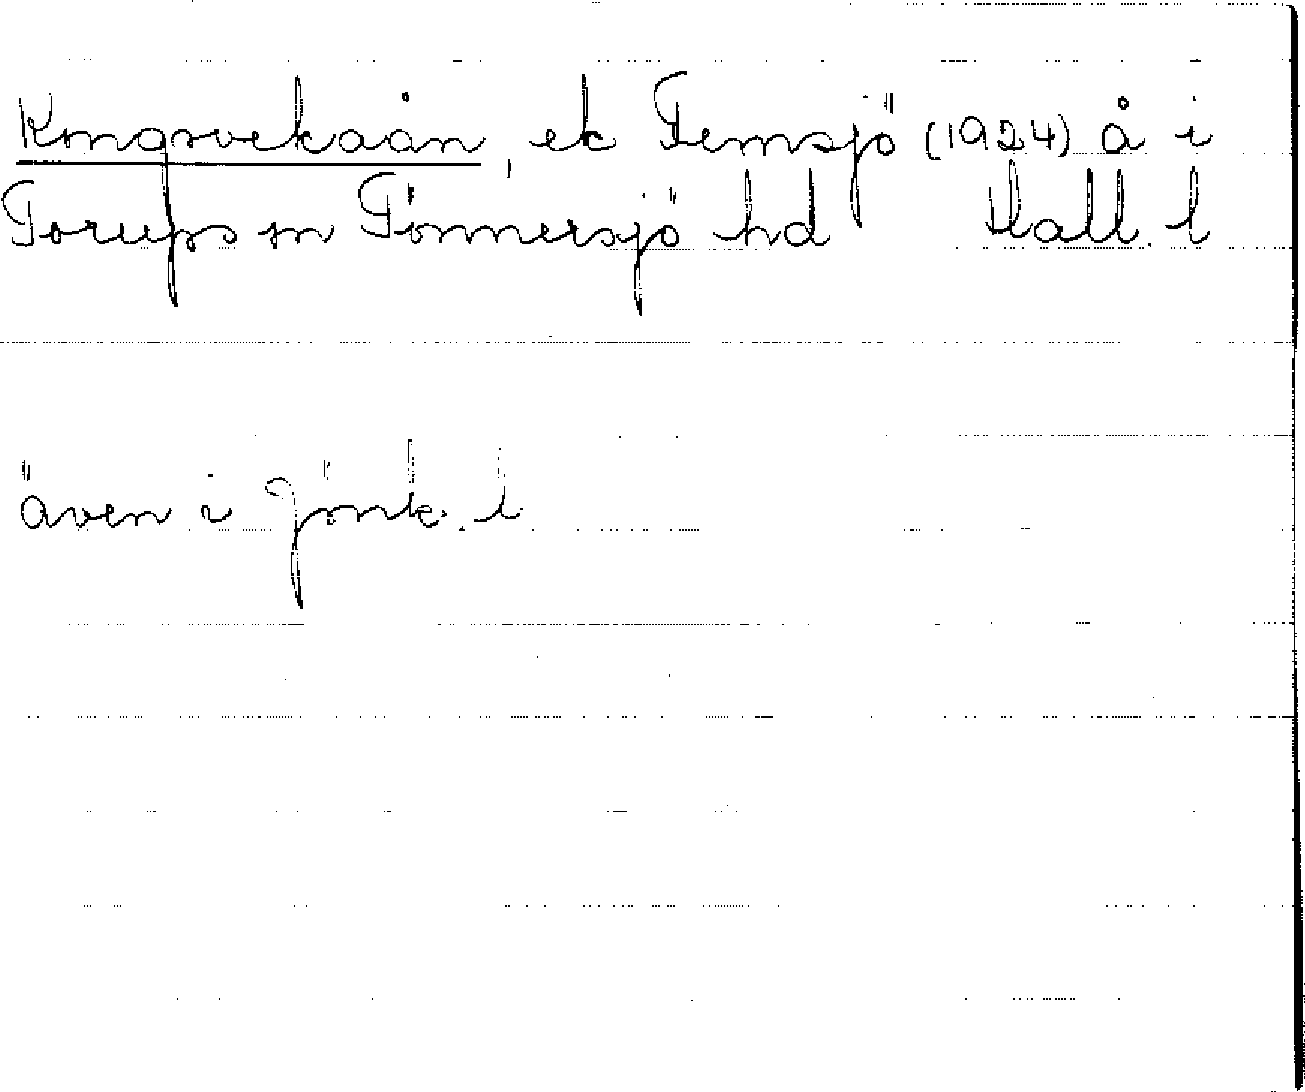 Kongsvekaån, ek Femsjö (1924) å i
Torups sn Tönnersjö hd Hall. l
även i Jönk. l